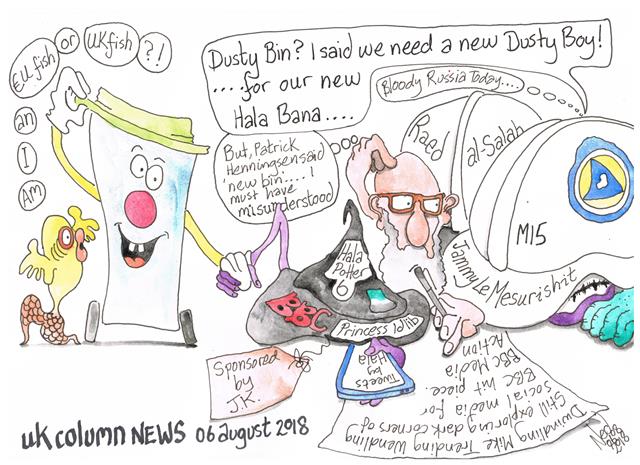 EU.fish
or
UKfish
?!
an
I
AM
Dusty Bin? I said we need a new Dusty Boy!
....for our new
Hala Bana....
Bloody Russia Today....
But, Patrick
Henningsen said
'new bin'.... I
must have
misunderstood
Raed
al-Salah
MI5
Jammy Le Mesurishit
Hala
Potter
6
BBC
Princess Idlib
Sponsored
by
J.K.
Tweets
by
Hala
Mike Trending Wendling
Dwindling
Still exploring dark corners of
social media for
BBC hit piece.
BBC Media
Action
uk column NEWS 06 august 2018